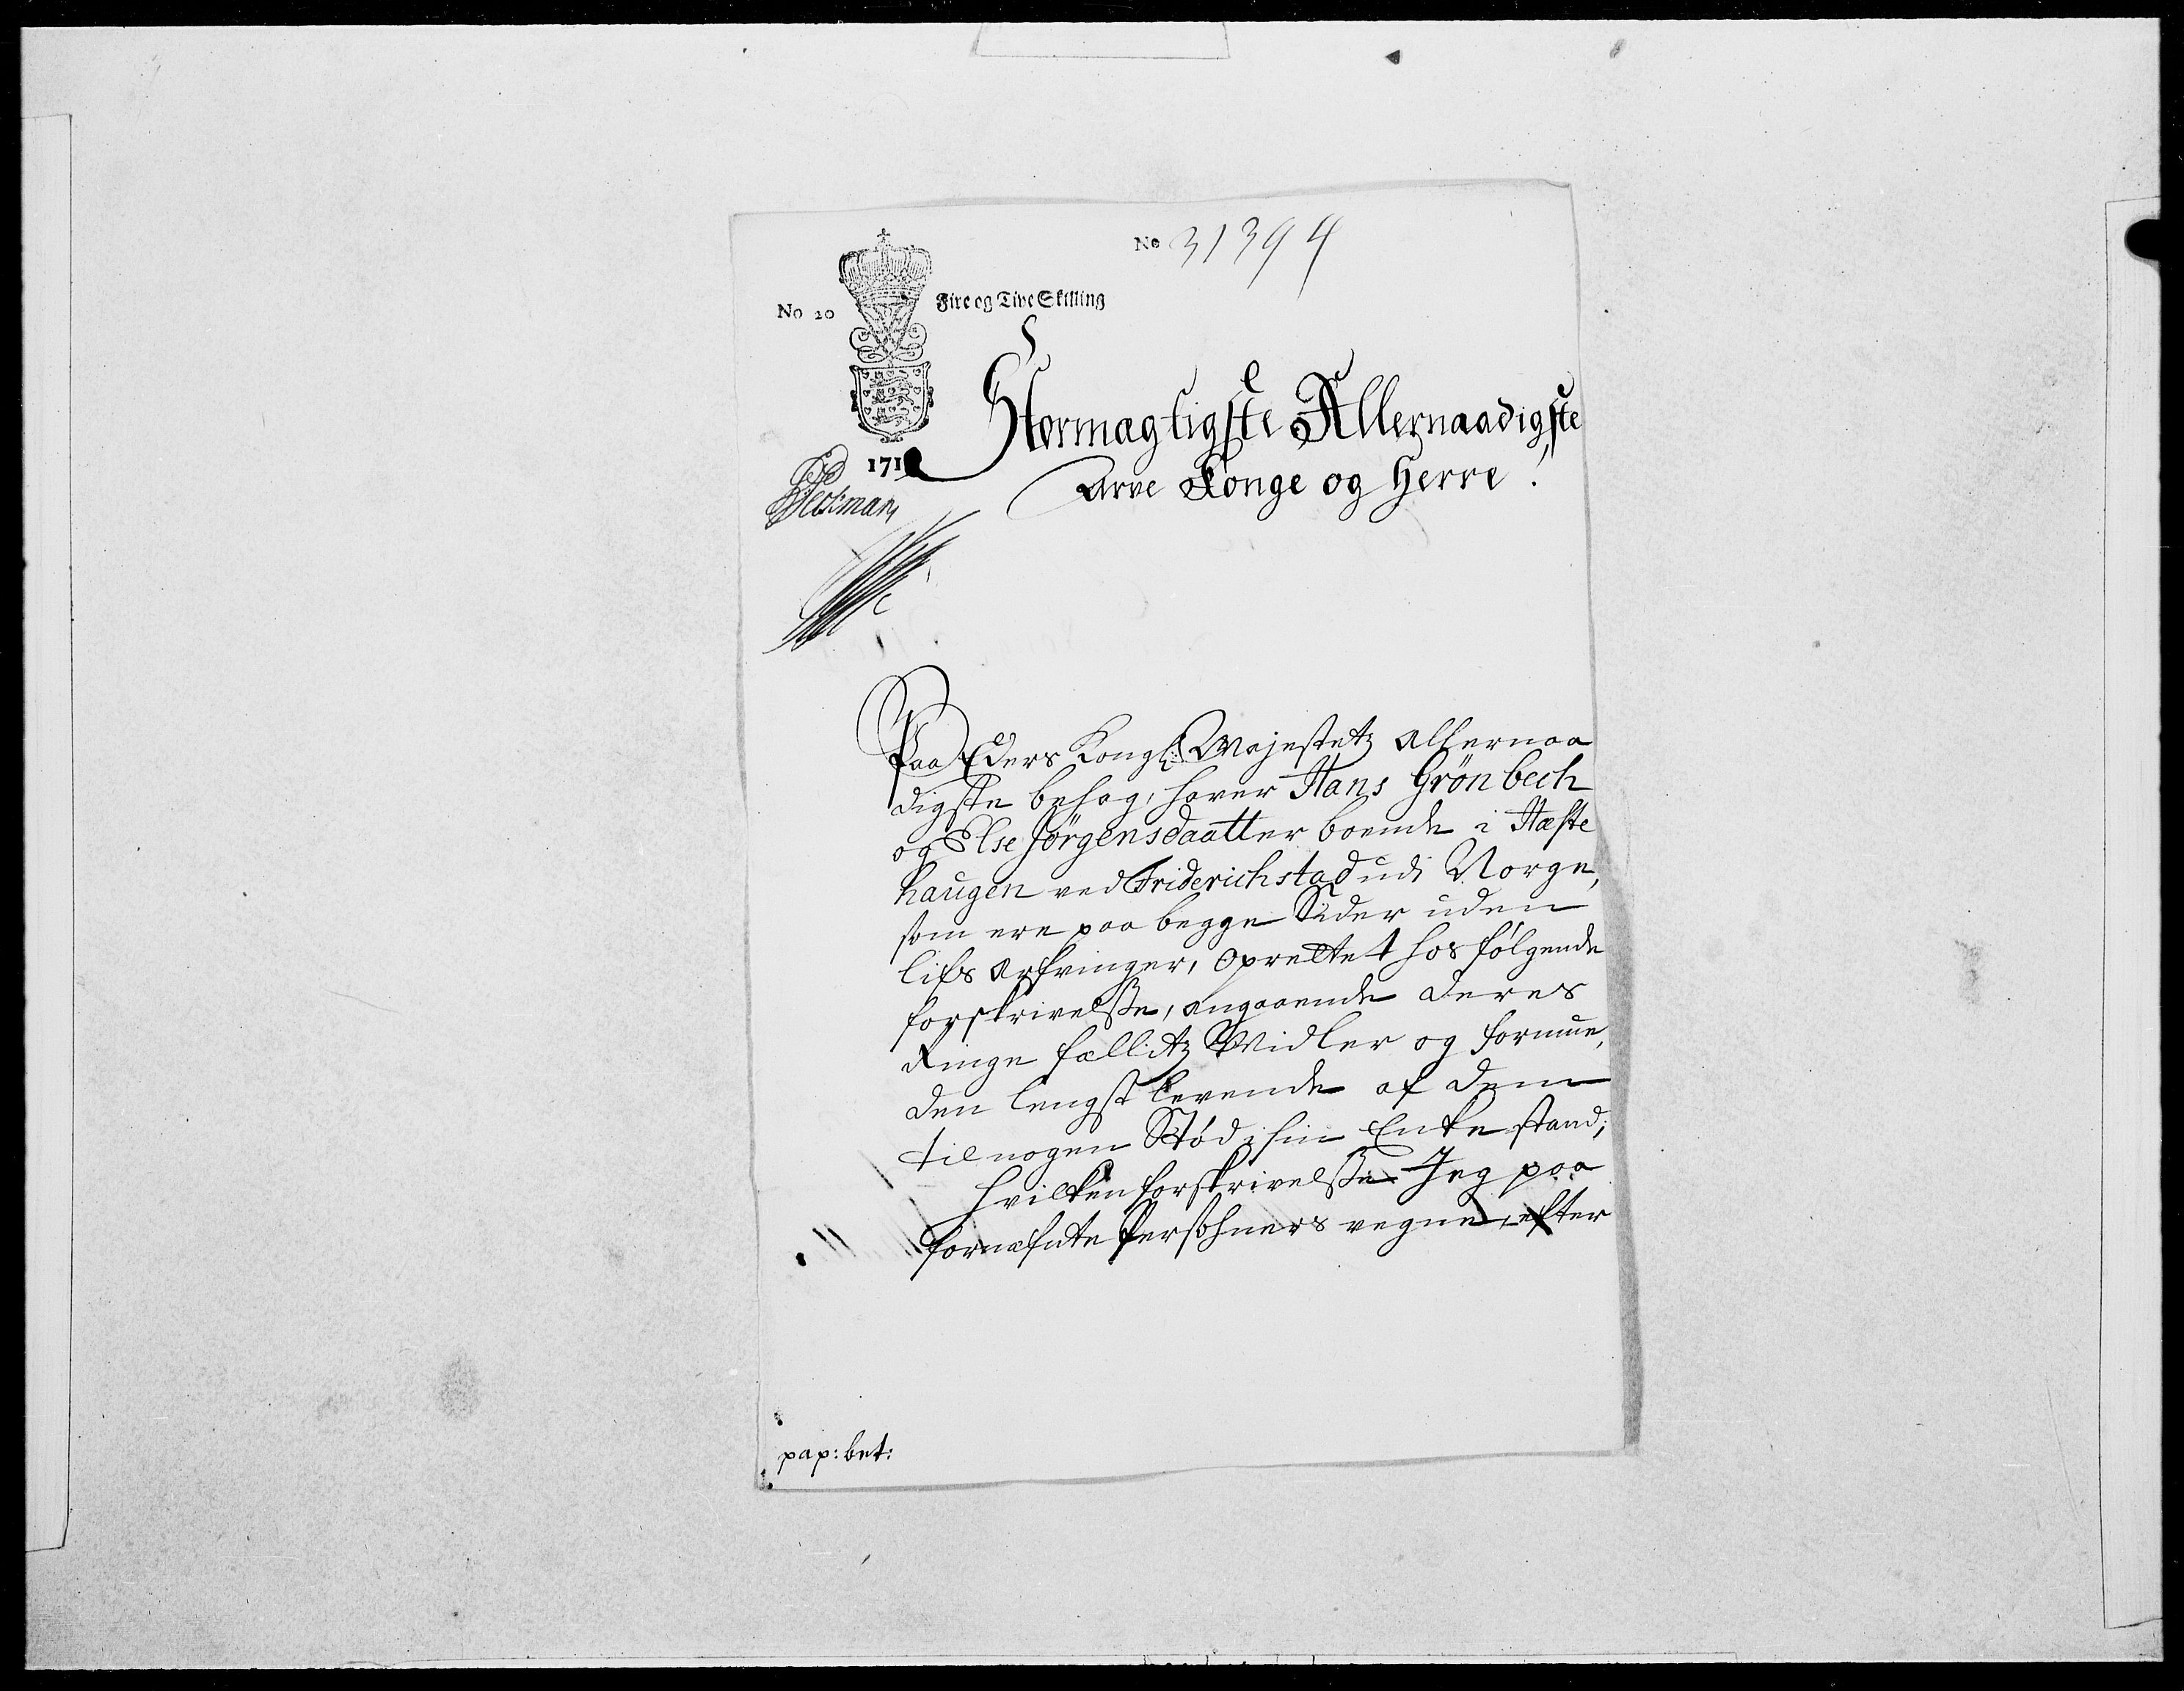 No 31394
No 20 Fire og Tive Skilling
171
Stormægtigste Allernaadigste
Arve Konge og Herre!
Paa Eders Kongl: Majestetz Allernaa
digste behag, haver Hans Grönbech
og Else Jörgensdaatter boende i Hæste
haugen ved Friderichstad udi Norge,
som ere paa begge Sider uden
lifs Arfvinger, oprettet hos følgende
forskrivelsse, angaaende deres
Ringe fællitz Midler og formue,
den lengst levende af dem
til nogen Stöd i sin Enke stand;
Hvilken forskrivelsse Jeg paa
fornefnte Persohners vegne, efter
pap: bet: